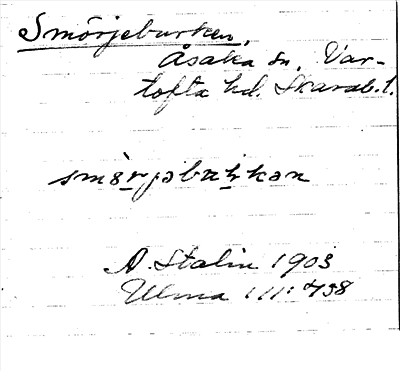 Smörjeburken,
Åsaka sn, Var-
tofta hd. Skarab. l.
smörjəburkən
A. Stalin 1903
Ulma 111:438